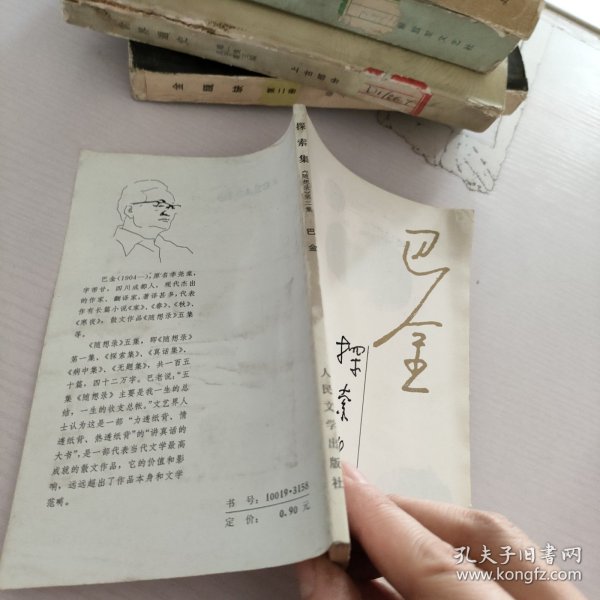 全唐诗
第二册
探索集
《随想录》第二集
巴金
巴金(1904—),原名李尧棠,
字芾甘,四川成都人,现代杰出
的作家、翻译家,著译甚多,代表
作有长篇小说《家》、《春》、《秋》、
《寒夜》,散文作品《随想录》五集
等。
《随想录》五集,即《随想录》
第一集、《探索集》、《真话集》、
《病中集》、《无题集》,共一百五
十篇,四十二万字。巴老说,“五
集《随想录》主要是我一生的总
结,一生的收支总帐。”文艺界人
士认为这是一部“力透纸背、情
透纸背、热透纸背”的“讲真话的
大书”,是一部代表当代文学最高
成就的散文作品,它的价值和影
响,远远超出了作品本身和文学
范畴。
书号:10019·3158
定价:0.90元
巴金
探索
人民文学出版社
孔夫子旧书网
www.kongfz.com